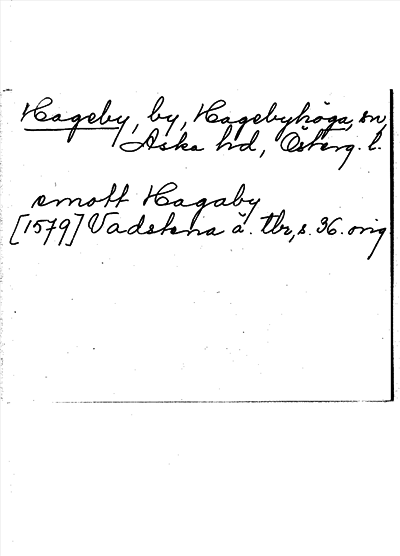 Hageby, by, Hagebyhöga, sn,
Aska hd, Österg. l.
emott Hagaby
[1579] Vadstena ä. tbr, s. 36. orig